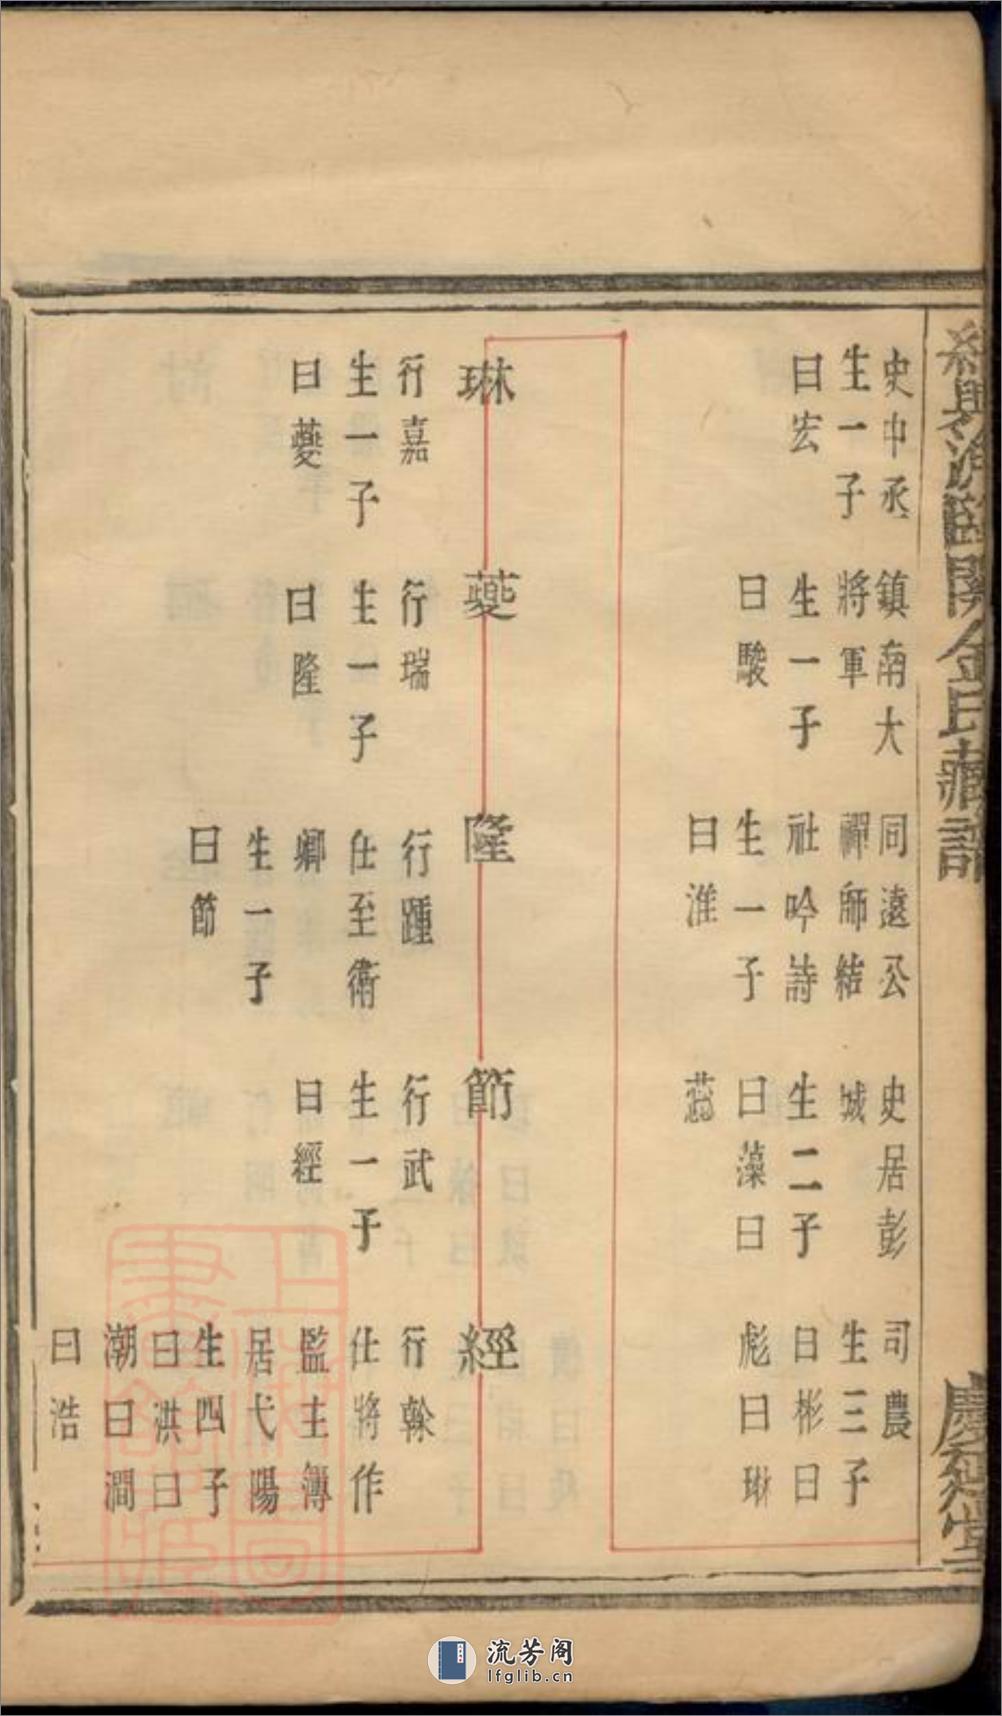 紹興漁臨關金氏藏譜
慶延堂
史中丞
生一子
曰宏
鎮南大
將軍
生一子
曰駿
同遠公
禪師結
社吟詩
生一子
曰淮
史居彭
城
生二子
曰藻曰
司農
生三子
曰彬曰
彪曰琳
琳
行嘉
生一子
曰蘷
蘷
行瑞
生一子
曰隆
隆
行踵
仕至衛
卿
生一子
曰節
節
行武
生一子
曰經
經
行榦
仕將作
監主簿
居弋陽
生四子
曰洪曰
潮曰澗
曰浩
流芳阁
lfglib.cn